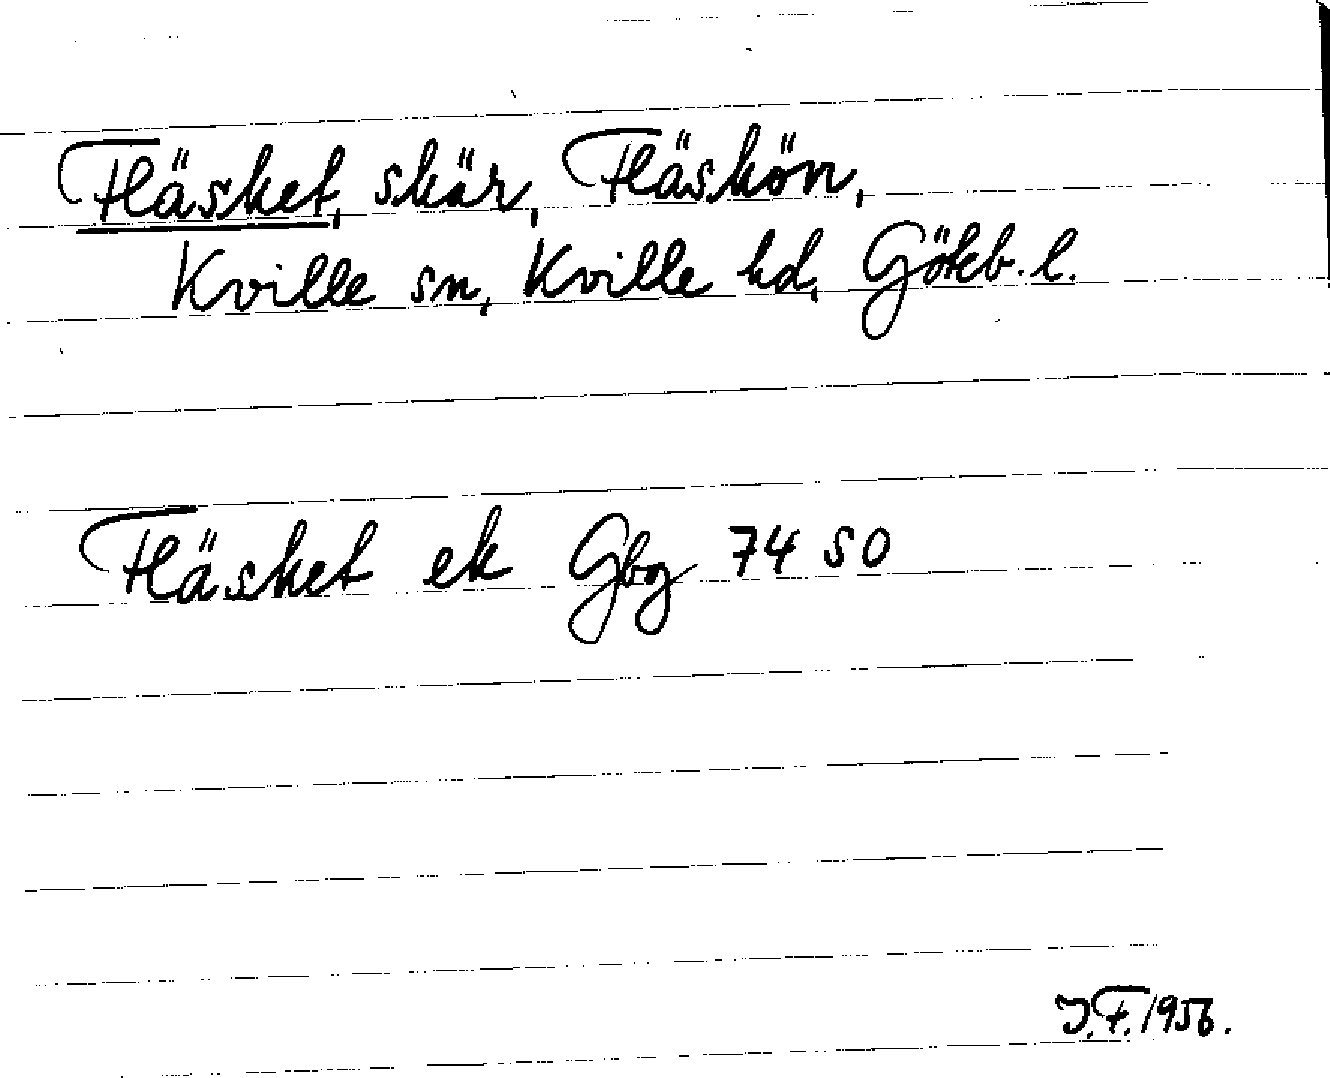 Fläsket, skär, Fläskön,
Kville sn, Kville hd, Göteb. l.
Fläsket ek Gbg 74 SO
J.F. 1956.